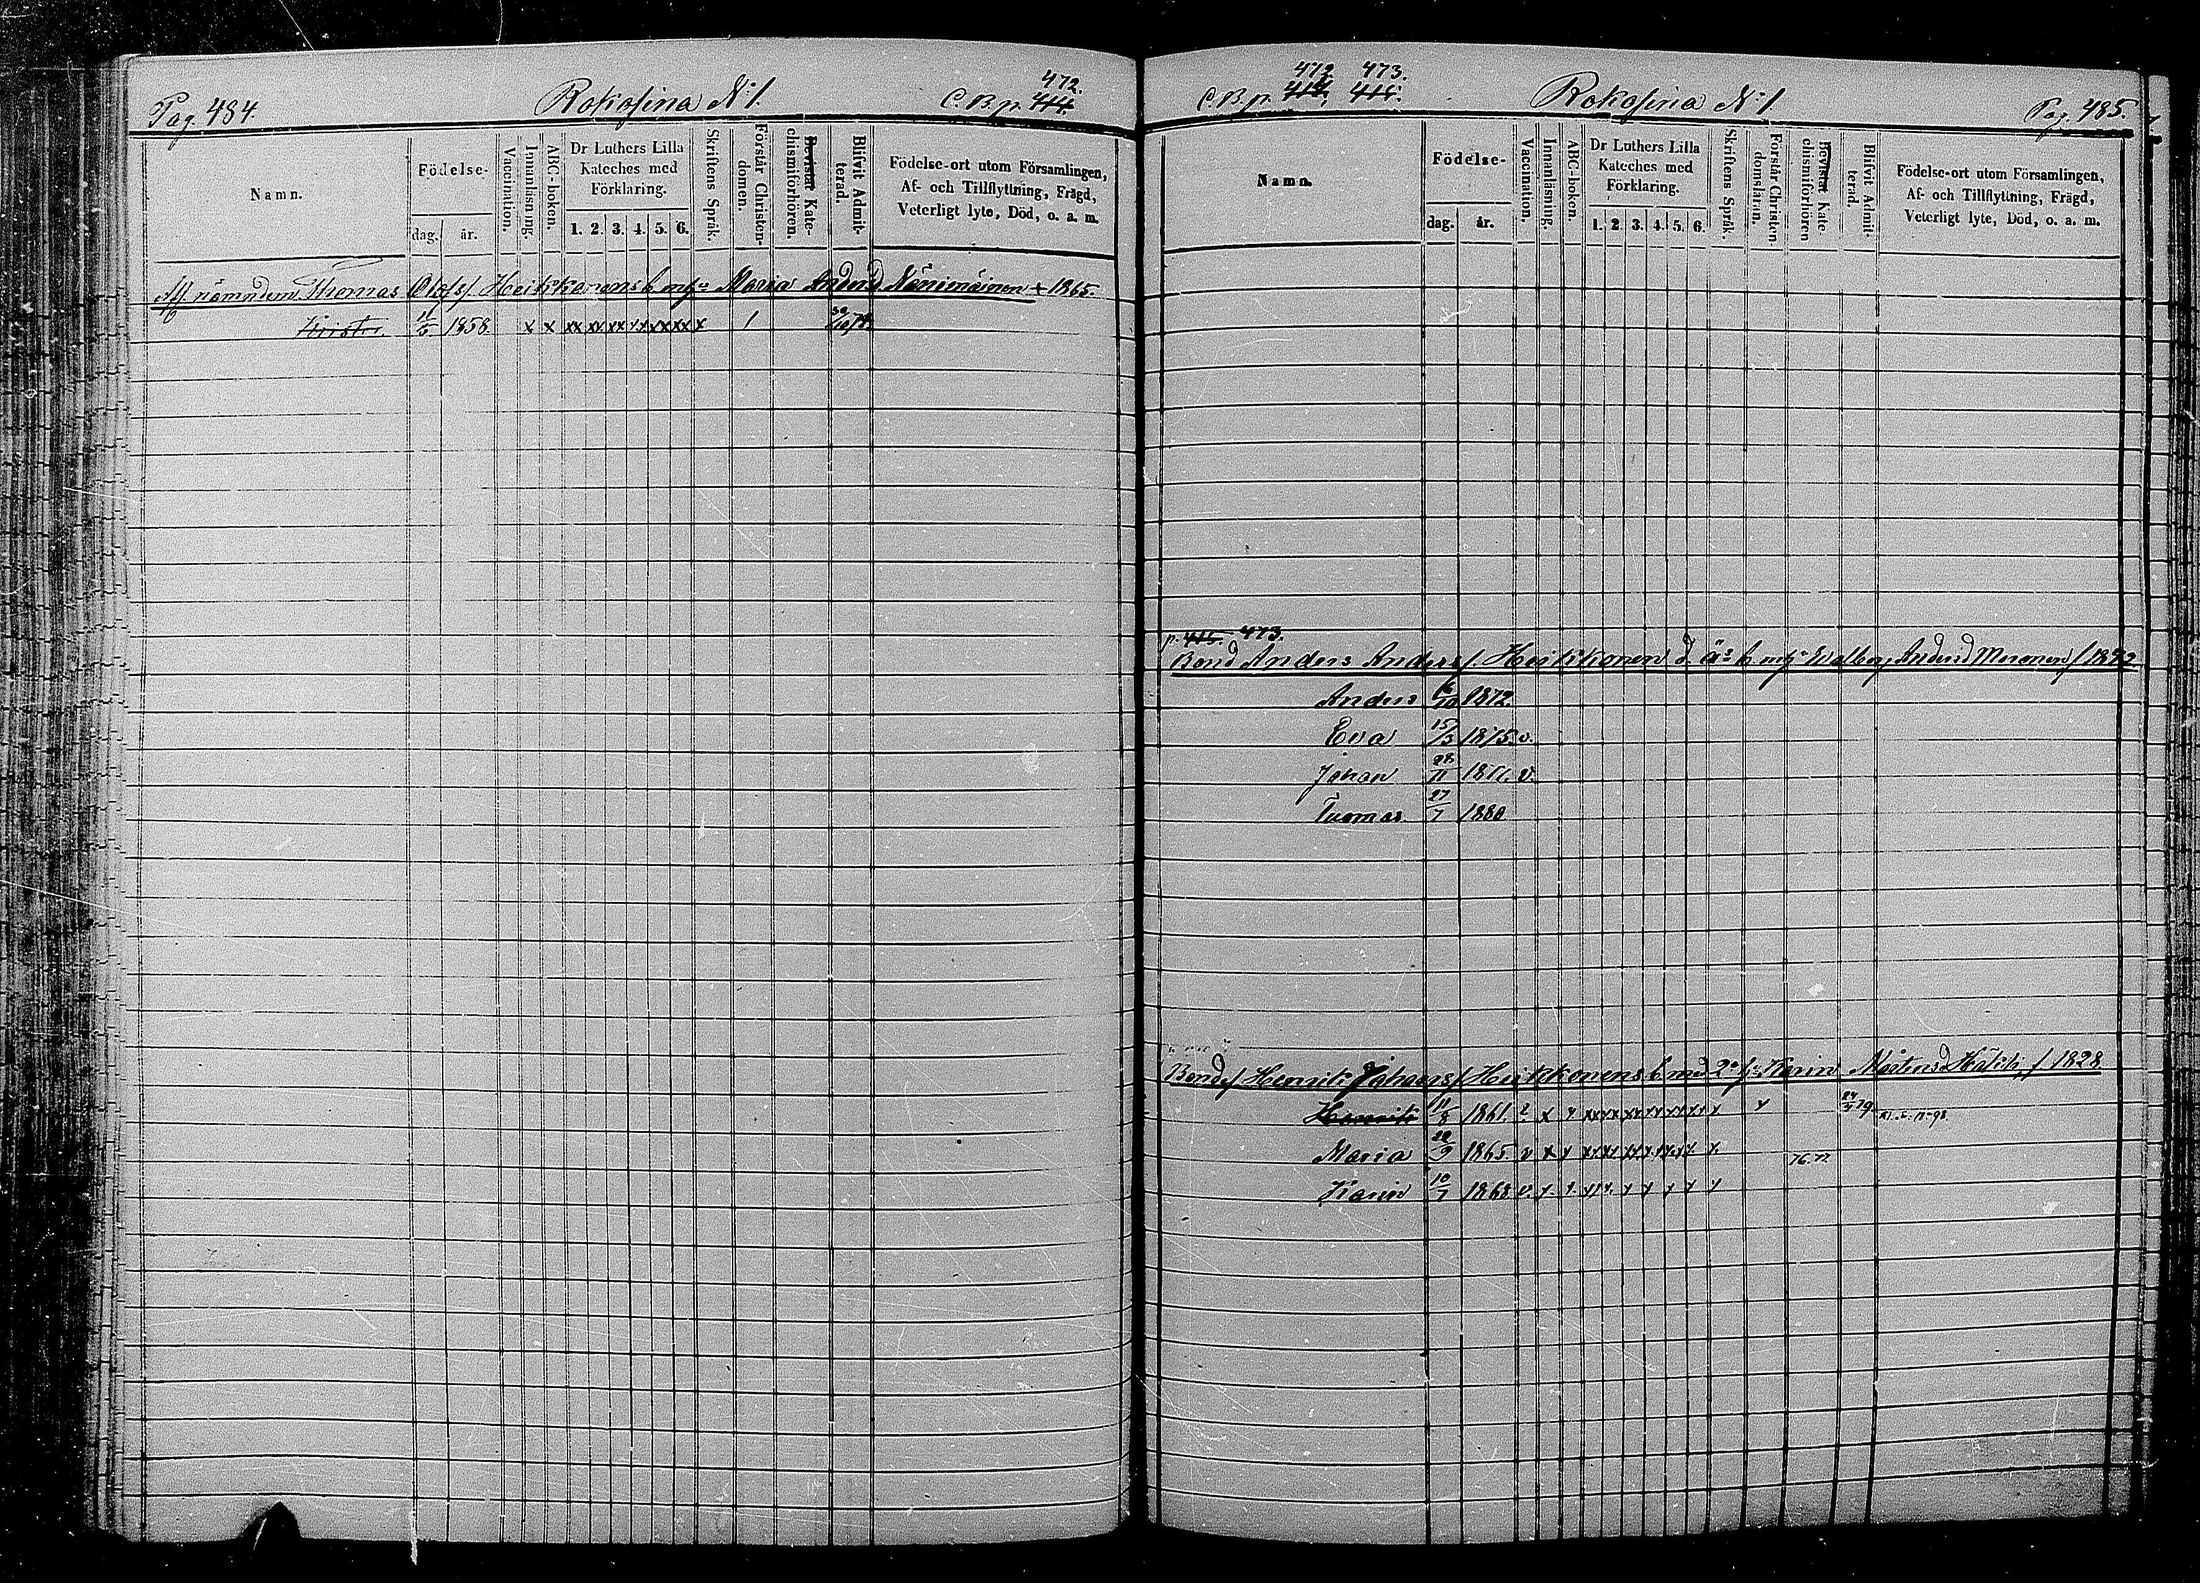 Pag. 484.
Rokosina No 1.
472.
C.B.p. 414.
Namn.
Födelse-
dag. år.
Vaccination.
Innanläsning.
ABC-boken.
Dr Luthers Lilla
Kateches med
Förklaring.
1. 2. 3. 4. 5. 6.
Skriftens Språk.
Förstår Christen-
domen.
Bevistat Kate-
chismiförhören.
Blifvit Admit-
terad.
Födelse-ort utom Församlingen,
Af- och Tillflyttning, Frägd,
Veterligt lyte, Död, o. a. m.
Afl. nämndem. Thomas Olofs. Heikkonens b. m. h. Maria Andersd Nänimäinen + 1865.
Krister 11/5 1858. x x xx xx xx xx xx xx x /
472 473.
C.B.p. 414, 415.
Rokosina No 1
Pag. 485.
Namn.
Födelse-
dag. år.
Vaccination.
Innanläsning.
ABC-boken.
Dr Luthers Lilla
Kateches med
Förklaring.
1. 2. 3. 4. 5. 6.
Skriftens Språk.
Förstår Christen-
domsläran.
Bevistat Kate-
chismiförhören
Blifvit Admit-
terad.
Födelse-ort utom Församlingen,
Af- och Tillflyttning, Frägd,
Veterligt lyte, Död, o. a. m.
p. 415. 473.
Bond Anders Anders. Heikkonen d. äs b. m. h. Walborg Andersd Moronen f 1842
Anders 16/10 1872.
Eva 15/3 1875. v.
Johan 28/11 1877. v.
Tuomas 27/7 1880
Bondes. Henrik Johans. Heikkonens b. med 2a h. Karin Mårtensd Hätti, f 1828
Henrik 11/8 1861. x x xx xx xx xx xx x x 79
Maria 28/9 1865. v x x xx xx xx xx xx x 76. 77
Karin 10/7 1868 v. x x x x x x x x